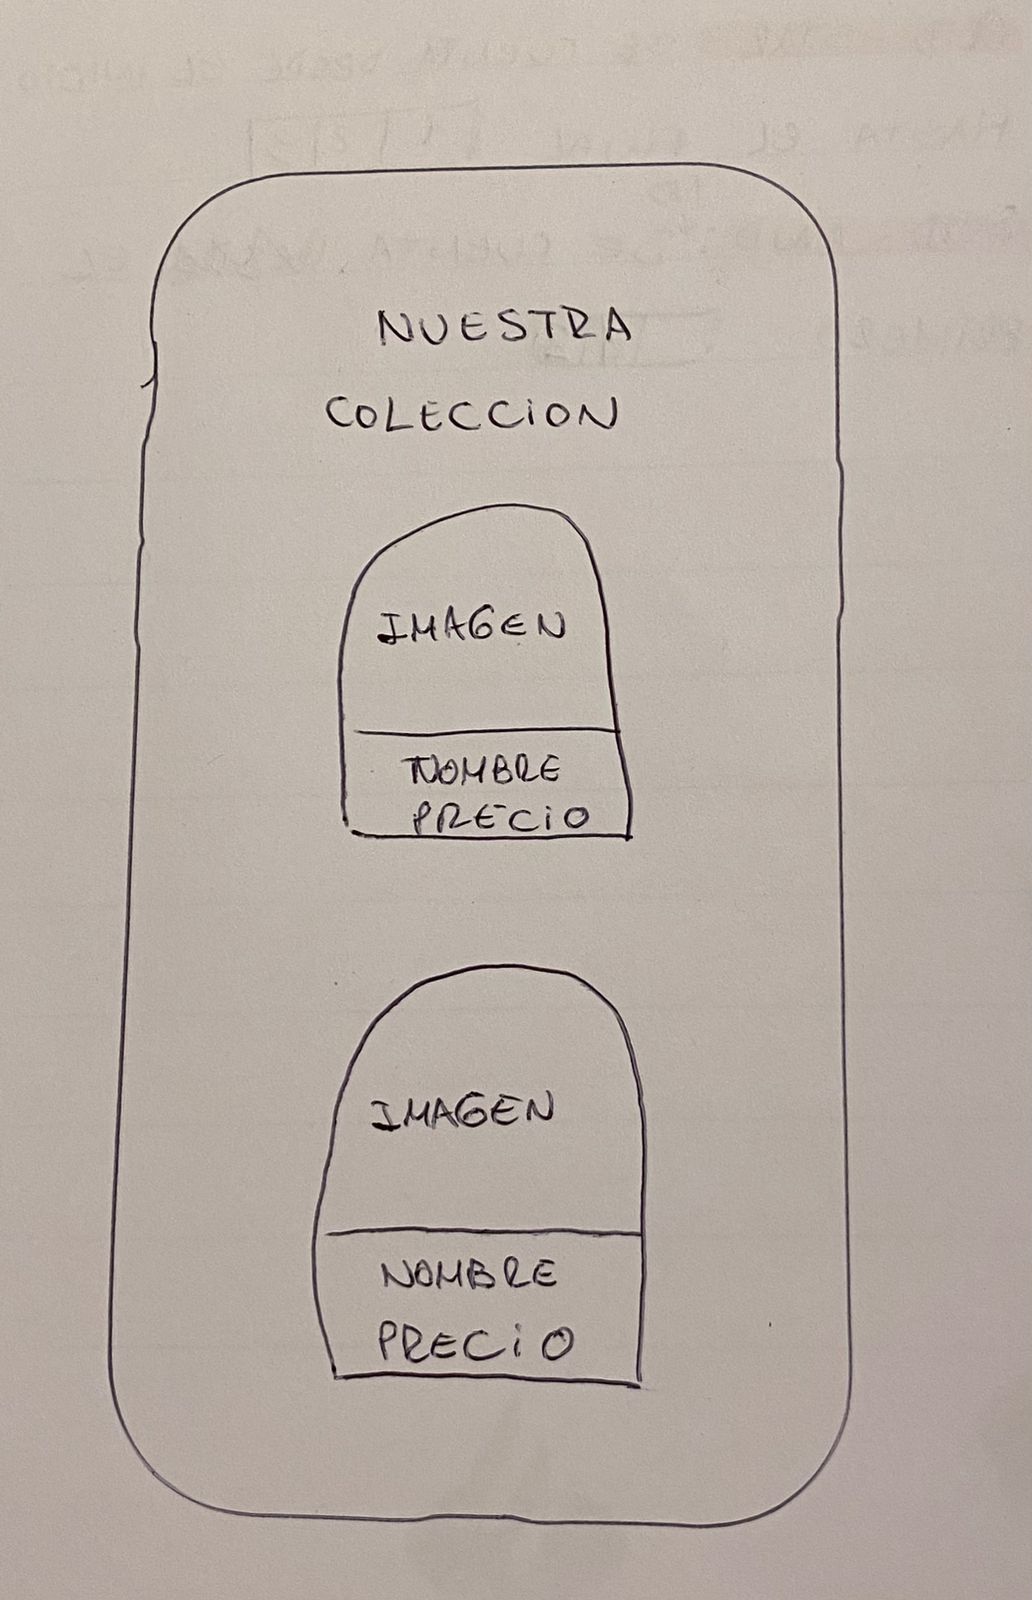 NUESTRA
COLECCION
IMAGEN
NOMBRE
PRECIO
IMAGEN
NOMBRE
PRECIO